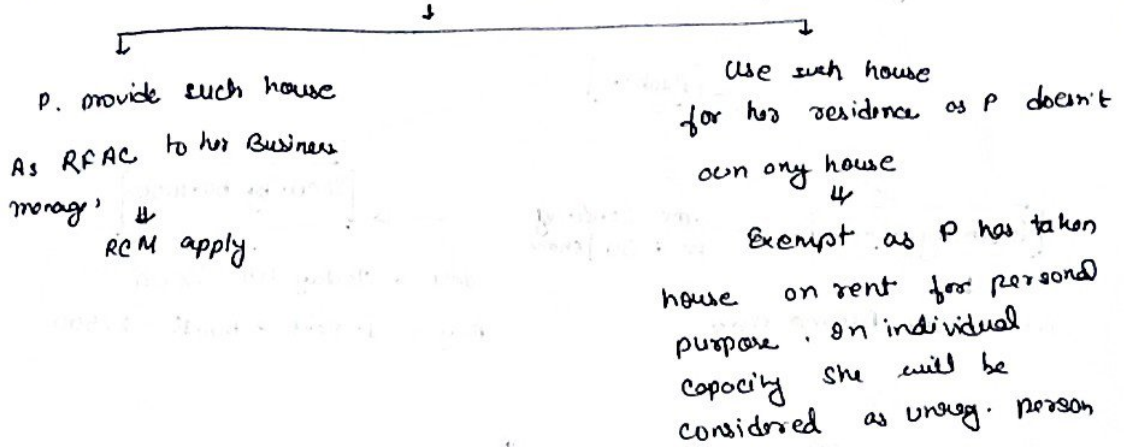 P. provide such house
As RFAC to her Business
manag'
RCM apply.
Use such house
for her residence as P doesn't
own any house
Exempt as P has taken
house on rent for personal
purpose. In individual
capacity she will be
considered as unreg. person